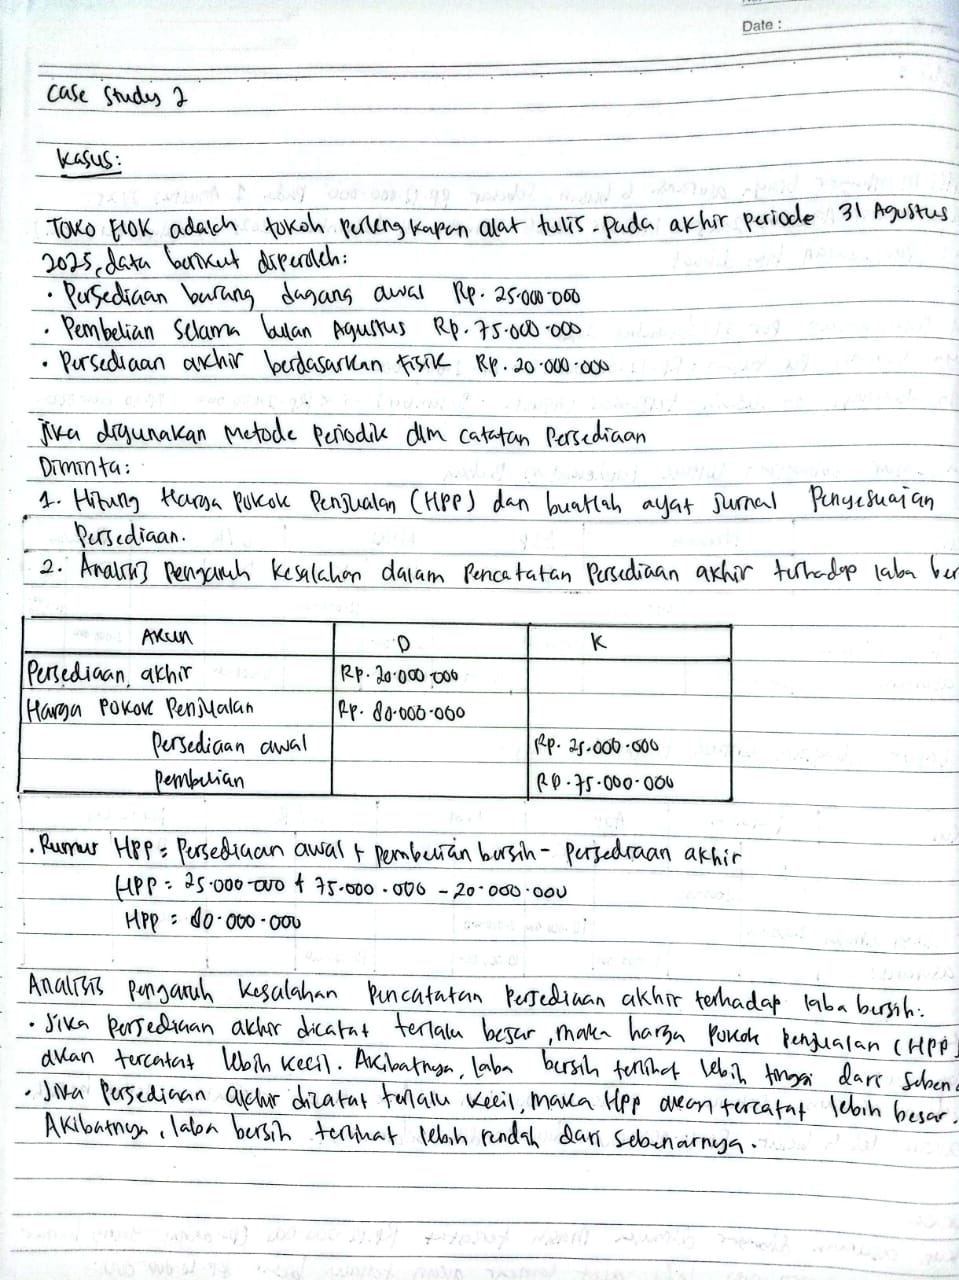 Date :
Case Study 2
Kasus:
Toko EIOK adalah tokoh perlengkapan alat tulis. Pada akhir periode 31 Agustus
2025, data berikut diperoleh:
• Persediaan barang dagang awal Rp. 25.000.000
• Pembelian Selama bulan Agustus Rp. 75.000.000
• Persediaan akhir berdasarkan Fisik Rp. 20.000.000
Jika digunakan Metode Periodik dlm catatan Persediaan
Diminta:
1. Hitung Harga Pokok Penjualan (HPP) dan buatlah ayat Jurnal Penyesuaian
Persediaan.
2. Analisis Pengaruh Kesalahan dalam Pencatatan Persediaan akhir terhadap laba ber
Akun D K
Persediaan akhir Rp. 20.000.000
Harga Pokok Penjualan Rp. 80.000.000
Persediaan awal Rp. 25.000.000
Pembelian Rp. 75.000.000
• Rumus HPP = Persediaan awal + pembelian bersih - Persediaan akhir
HPP = 25.000.000 + 75.000.000 - 20.000.000
HPP = 80.000.000
Analisis Pengaruh Kesalahan Pencatatan Persediaan akhir terhadap laba bersih:
• Jika Persediaan akhir dicatat terlalu besar, maka harga Pokok Penjualan (HPP)
akan tercatat lebih kecil. Akibatnya, laba bersih terlihat lebih tinggi dari seben
• Jika Persediaan akhir dicatat terlalu kecil, maka HPP akan tercatat lebih besar.
Akibatnya, laba bersih terlihat lebih rendah dari sebenarnya.